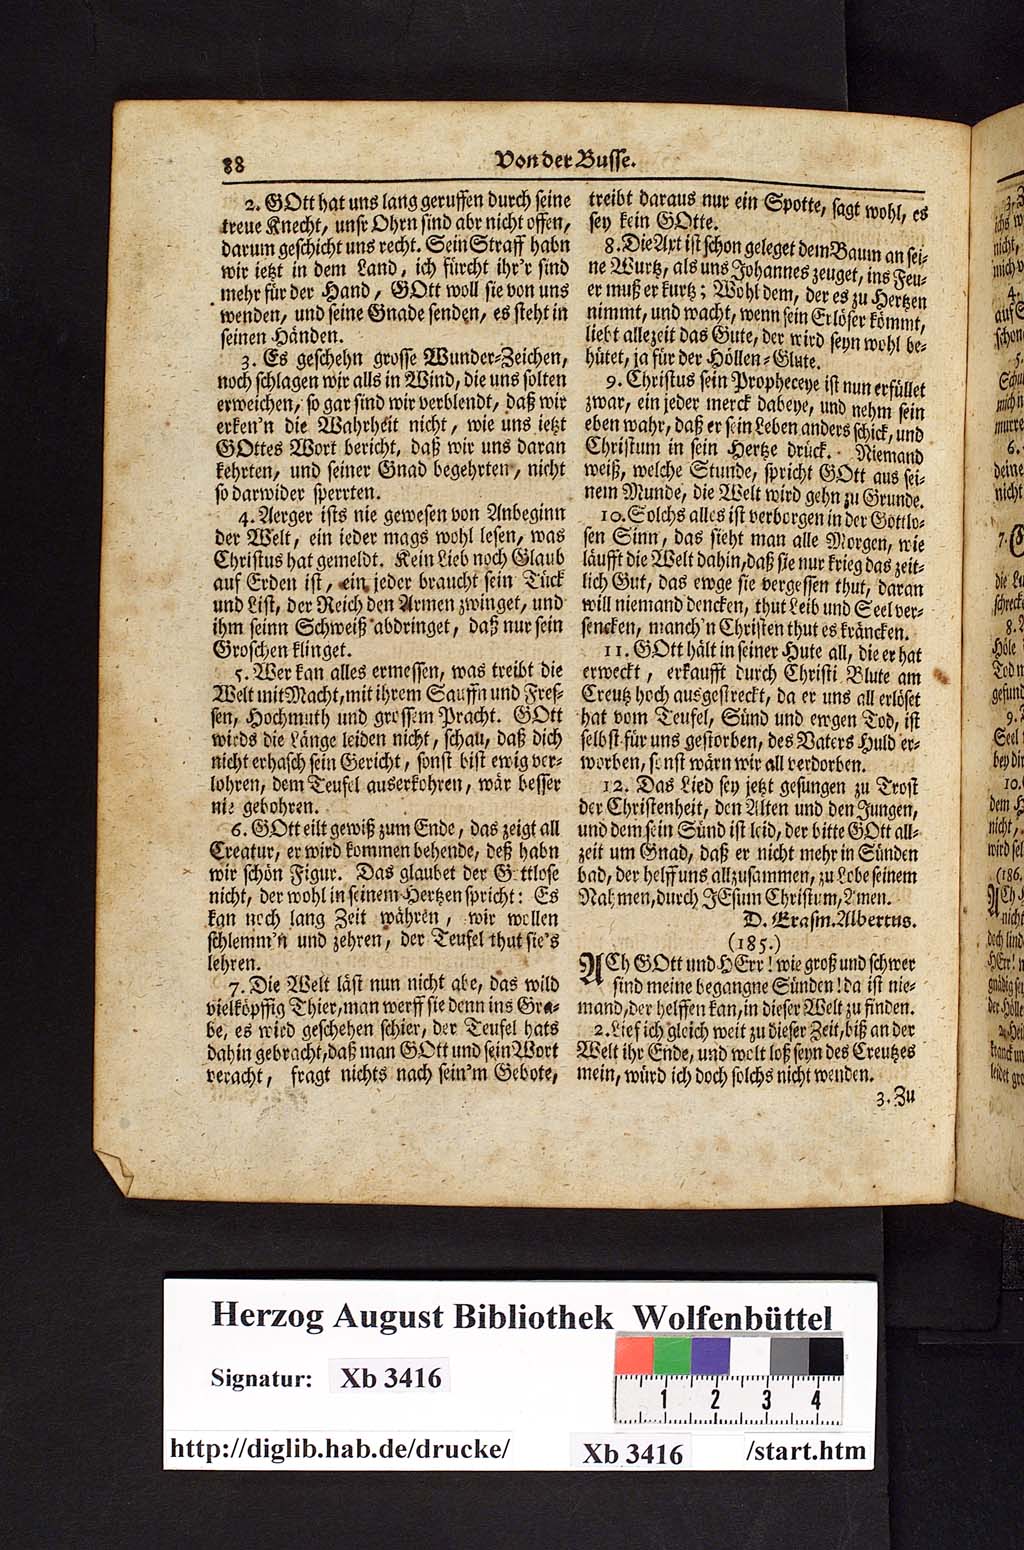 88
Von der Busse.
2. GOtt hat uns lang geruffen durch seine
treue Knecht, unsr Ohrn sind abr nicht offen,
darum geschicht uns recht. Sein Straff habn
wir ietzt in dem Land, ich fürcht ihr'r sind
mehr für der Hand, GOtt woll sie von uns
wenden, und seine Gnade senden, es steht in
seinen Händen.
3. Es geschehn grosse Wunder-Zeichen,
noch schlagen wir alls in Wind, die uns solten
erweichen, so gar sind wir verblendt, daß wir
erken'n die Wahrheit nicht, wie uns ietzt
GOttes Wort bericht, daß wir uns daran
kehrten, und seiner Gnad begehrten, nicht
so darwider sperrten.
4. Aerger ists nie gewesen von Anbeginn
der Welt, ein ieder mags wohl lesen, was
Christus hat gemeldt. Kein Lieb noch Glaub
auf Erden ist, ein jeder braucht sein Tück
und List, der Reich den Armen zwinget, und
ihm seinn Schweiß abdringet, daß nur sein
Groschen klinget.
5. Wer kan alles ermessen, was treibt die
Welt mit Macht, mit ihrem Sauffn und Fres-
sen, Hochmuth und grossem Pracht. GOtt
wirds die Länge leiden nicht, schau, daß dich
nicht erhasch sein Gericht, sonst bist ewig ver-
lohren, dem Teufel auserkohren, wär besser
nie gebohren.
6. GOtt eilt gewiß zum Ende, das zeigt all
Creatur, er wird kommen behende, deß habn
wir schön Figur. Das glaubet der Gottlose
nicht, der wohl in seinem Hertzen spricht: Es
kan noch lang Zeit währen, wir wollen
schlemm'n und zehren, der Teufel thut sie's
lehren.
7. Die Welt läst nun nicht abe, das wild
vielköpffig Thier, man werff sie denn ins Gra-
be, es wird geschehen schier, der Teufel hats
dahin gebracht, daß man GOtt und sein Wort
veracht, fragt nichts nach sein'm Gebote,
treibt daraus nur ein Spotte, sagt wohl, es
sey kein GOtte.
8. Die Axt ist schon geleget dem Baum an sei-
ne Wurtz, als uns Johannes zeuget, ins Feu-
er muß er kurtz; Wohl dem, der es zu Hertzen
nimmt, und wacht, wenn sein Erlöser kömmt,
liebt allezeit das Gute, der wird seyn wohl be-
hütet, ja für der Höllen-Glute.
9. Christus sein Propheceye ist nun erfüllet
zwar, ein jeder merck dabeye, und nehm sein
eben wahr, daß er sein Leben anders schick, und
Christum in sein Hertze drück. Niemand
weiß, welche Stunde, spricht GOtt aus sei-
nem Munde, die Welt wird gehn zu Grunde.
10. Solchs alles ist verborgen in der Gottlo-
sen Sinn, das sieht man alle Morgen, wie
läufft die Welt dahin, daß sie nur krieg das zeit-
lich Gut, das ewge sie vergessen thut, daran
will niemand dencken, thut Leib und Seel ver-
sencken, manch'n Christen thut es kräncken.
11. GOtt hält in seiner Hute all, die er hat
erweckt, erkaufft durch Christi Blute am
Creutz hoch ausgestreckt, da er uns all erlöset
hat vom Teufel, Sünd und ewgen Tod, ist
selbst für uns gestorben, des Vaters Huld er-
worben, sonst wärn wir all verdorben.
12. Das Lied sey jetzt gesungen zu Trost
der Christenheit, den Alten und den Jungen,
und dem sein Sünd ist leid, der bitte GOtt all-
zeit um Gnad, daß er nicht mehr in Sünden
bad, der helff uns allzusammen, zu Lobe seinem
Nahmen, durch JEsum Christum, Amen.
D. Erasm. Albertus.
(185.)
ACh GOtt und HErr! wie groß und schwer
sind meine begangne Sünden! da ist nie-
mand, der helffen kan, in dieser Welt zu finden.
2. Lief ich gleich weit zu dieser Zeit, biß an der
Welt ihr Ende, und wolt loß seyn des Creutzes
mein, würd ich doch solchs nicht wenden.
3. Zu
Herzog August Bibliothek Wolfenbüttel
Signatur: Xb 3416
1 2 3 4
http://diglib.hab.de/drucke/ Xb 3416 /start.htm